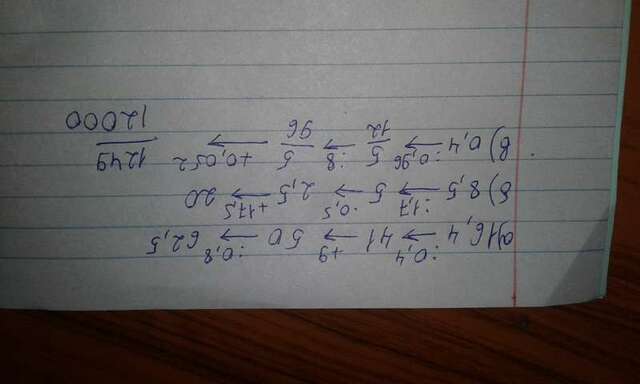 а) 16,4 :0,4 → 41 +9 → 50 :0,8 → 62,5
б) 8,5 :1,7 → 5 ·0,5 → 2,5 +17,5 → 20
в) 0,4 :0,96 → 5/12 :8 → 5/96 +0,052 → 1249/12000